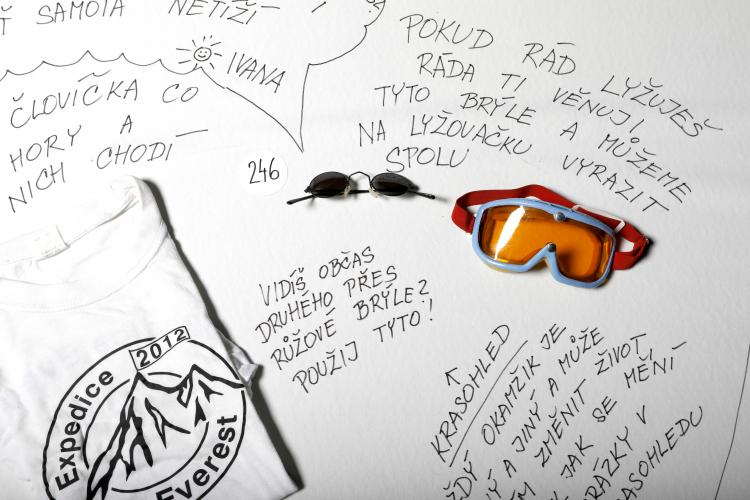 SAMOTA NETÍŽÍ
IVANA
ČLOVÍČKA CO
HORY A
NICH CHODÍ
246
POKUD RÁD LYŽUJEŠ
RÁDA TI VĚNUJI
TYTO BRÝLE A MŮŽEME
NA LYŽOVAČKU VYRAZIT
SPOLU
VIDÍŠ OBČAS
DRUHÉHO PŘES
RŮŽOVÉ BRÝLE?
POUŽIJ TYTO!
Expedice
2012
Everest
KRASOHLED
OKAMŽIK JE
A JINÝ A MŮŽE
ZMĚNIT ŽIVOT,
JAK SE MĚNÍ
V